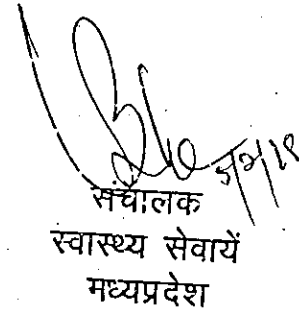 संचालक
स्वास्थ्य सेवायें
मध्यप्रदेश